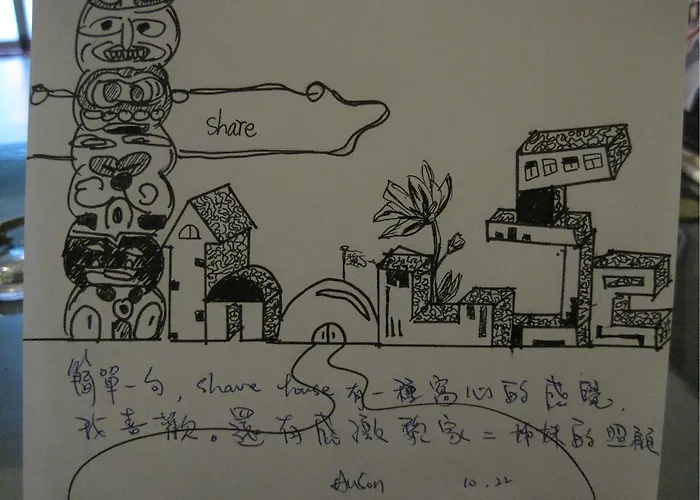 share
簡單一句，share house 有一種窩心的感覺，
我喜歡。還有感激歐家二姊妹的照顧
10.22